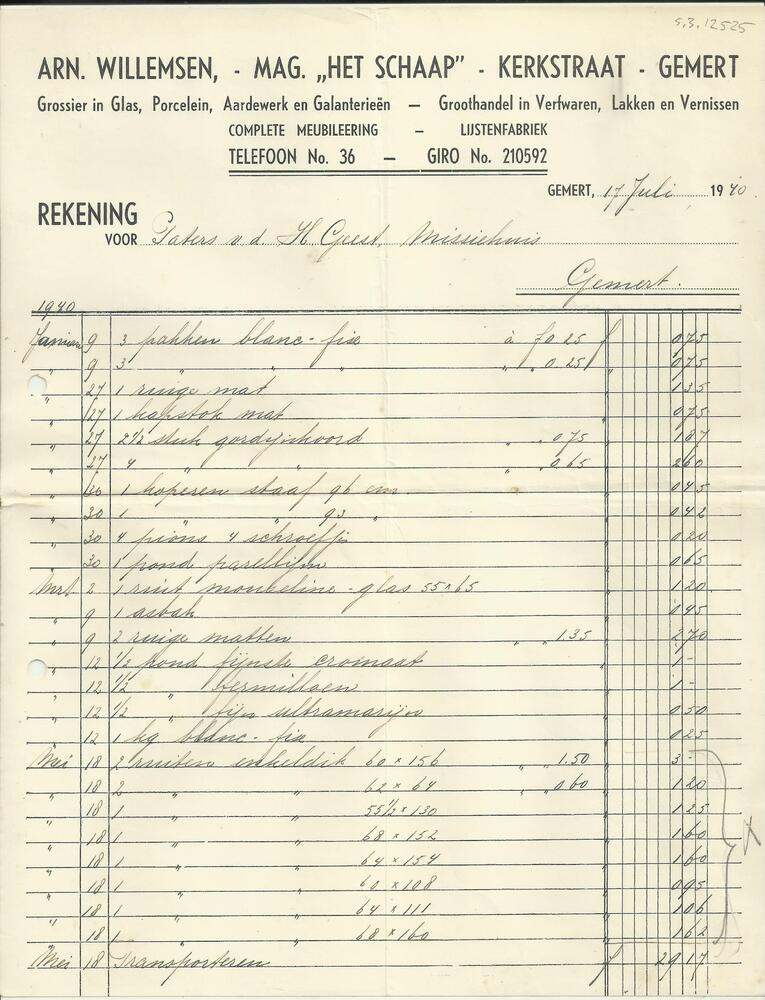 S.3.12525
ARN. WILLEMSEN, - MAG. „HET SCHAAP” - KERKSTRAAT - GEMERT
Grossier in Glas, Porcelein, Aardewerk en Galanterieën — Groothandel in Verfwaren, Lakken en Vernissen
COMPLETE MEUBILEERING — LIJSTENFABRIEK
TELEFOON No. 36 — GIRO No. 210592
GEMERT, 17 Juli 1940
REKENING
VOOR Paters v. d. H Geest, Missiehuis
Gemert.
1940
Januari 9 3 pakken blanc-fixe à f 0.25 f 0 75
„ 9 3 „ „ „ „ 0.25 0 75
„ 27 1 ruige mat 1 35
„ 27 1 kapstok mat 0 75
„ 27 2½ stuk gordijnkoord „ 0.75 1 87
„ 27 4 „ „ „ 0.65 2 60
„ 30 1 koperen staaf 96 cm 0 45
„ 30 1 „ „ 93 „ 0 42
„ 30 4 pions 4 schroefje 0 20
„ 30 1 pond parellijm 0 65
Mrt 2 1 ruit mousseline-glas 55 x 65 1 20
„ 9 1 asbak 0 45
„ 9 2 ruige matten „ „ 1.35 2 70
„ 12 ½ pond fijnste cromaat 1 -
„ 12 ½ „ vermilloen 1 -
„ 12 ½ „ fijn ultramarijn 0 50
„ 12 1 kg blanc-fix 0 25
Mei 18 2 ruiten enkeldik 60 x 156 „ 1.50 3 -
„ 18 2 „ „ 62 x 64 „ 0.60 1 20
„ 18 1 „ „ 55½ x 130 1 25
„ 18 1 „ „ 68 x 152 1 60
„ 18 1 „ „ 64 x 154 1 60
„ 18 1 „ „ 60 x 108 0 95
„ 18 1 „ „ 64 x 111 1 06
„ 18 1 „ „ 68 x 160 1 62
Mei 18 Transporteren f 29 17